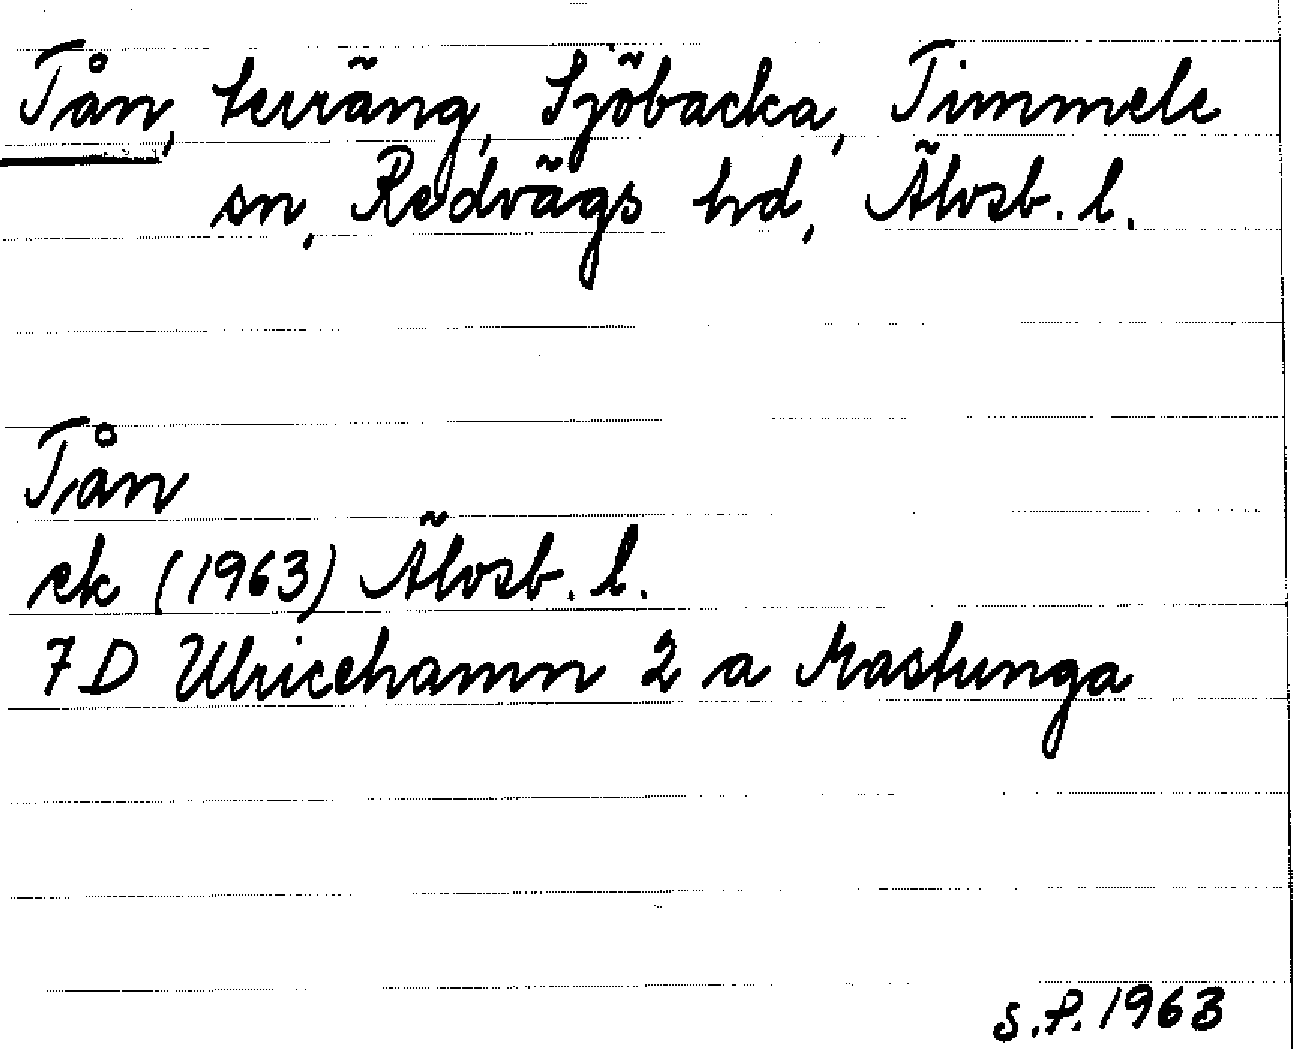 Tån, terräng, Sjöbacka, Timmele
sn, Redvägs hd, Älvsb. l.
Tån
ek (1963) Älvsb. l.
7D Ulricehamn 2 a Mastunga
S.P. 1963